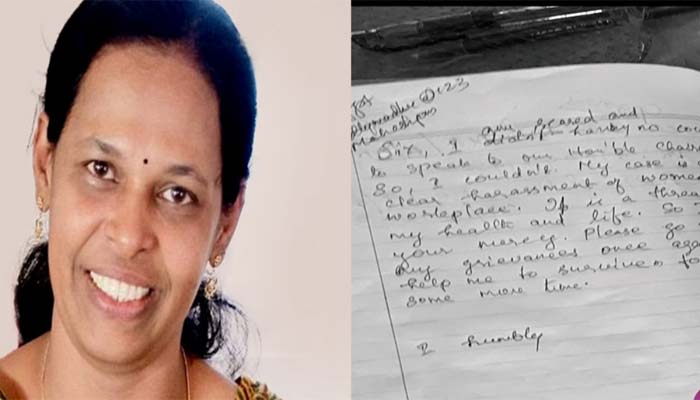 @123
Sir, I am scared and
didn't having no con
to speak to our Hon'ble Chair
So, I couldn't. My case is
clear harassment of women
workplace. It is a threa
my health and life. So
your mercy. Please go
my grievances once aga
help me to survive to
some more time.
I humbly